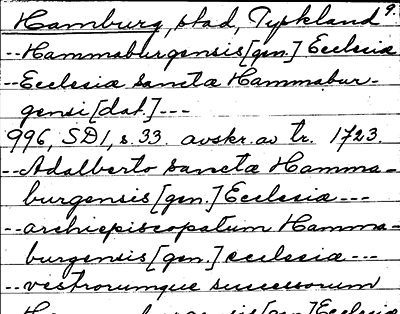 Hamburg, stad, Tyskland 9.
--Hammaburgensis[gen.] Ecclesiæ
--Ecclesiæ sanctæ Hammabur-
gensi[dat.]---
996, SD1, s. 33. avskr. av tr. 1723.
--Adalberto sanctæ Hamma-
burgensis[gen.] Ecclesiæ---
--archiepiscopatum Hamma-
burgensis[gen.] ecclesiæ---
--vestrorumque successorum
Hammaburgensis[gen.] Ecclesiæ